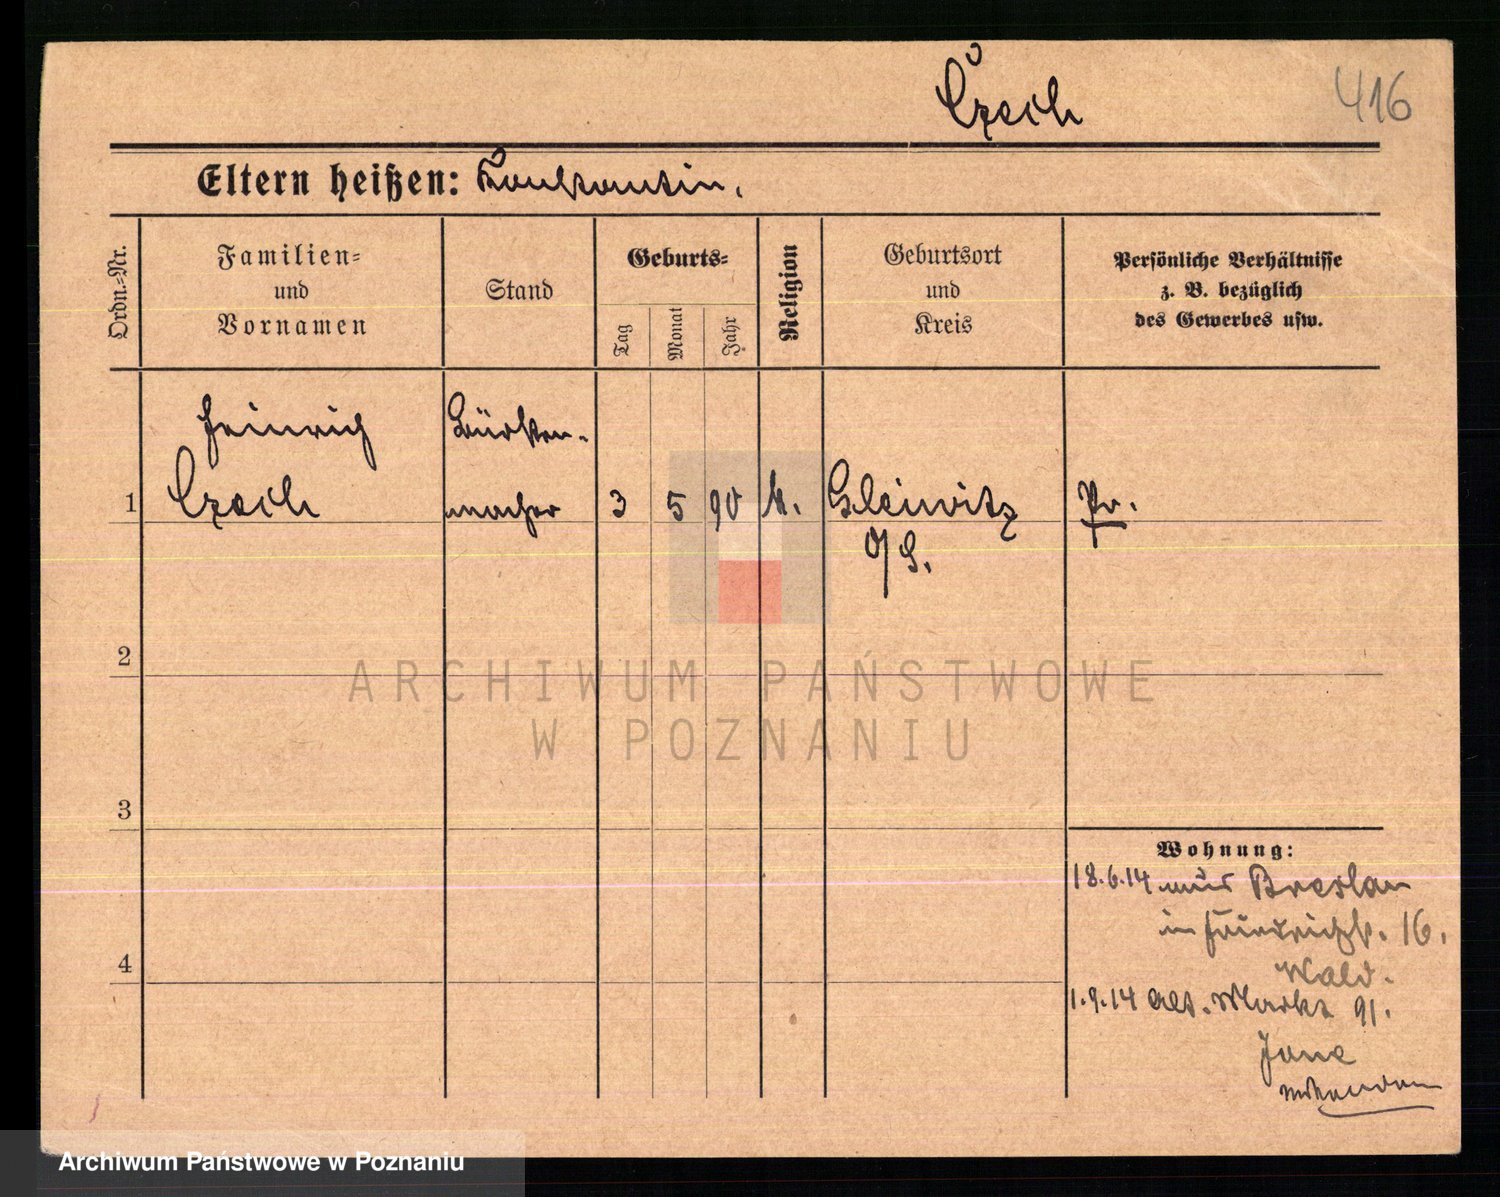 Czech
416
Eltern heißen: Konstantin.
Ordn.=Nr.
Familien=
und
Vornamen
Stand
Geburts=
Tag
Monat
Jahr
Religion
Geburtsort
und
Kreis
Persönliche Verhältnisse
z. B. bezüglich
des Gewerbes usw.
Heinrich
Czech
Bürsten-
macher
1
3 5 90 k.
Gleiwitz
O/S.
Pr.
2
3
4
Wohnung:
18.6.14 aus Breslau
in Friedrichst. 16.
Wald.
1.9.14 Alt. Markt 91.
ARCHIWUM PAŃSTWOWE
W POZNANIU
Archiwum Państwowe w Poznaniu